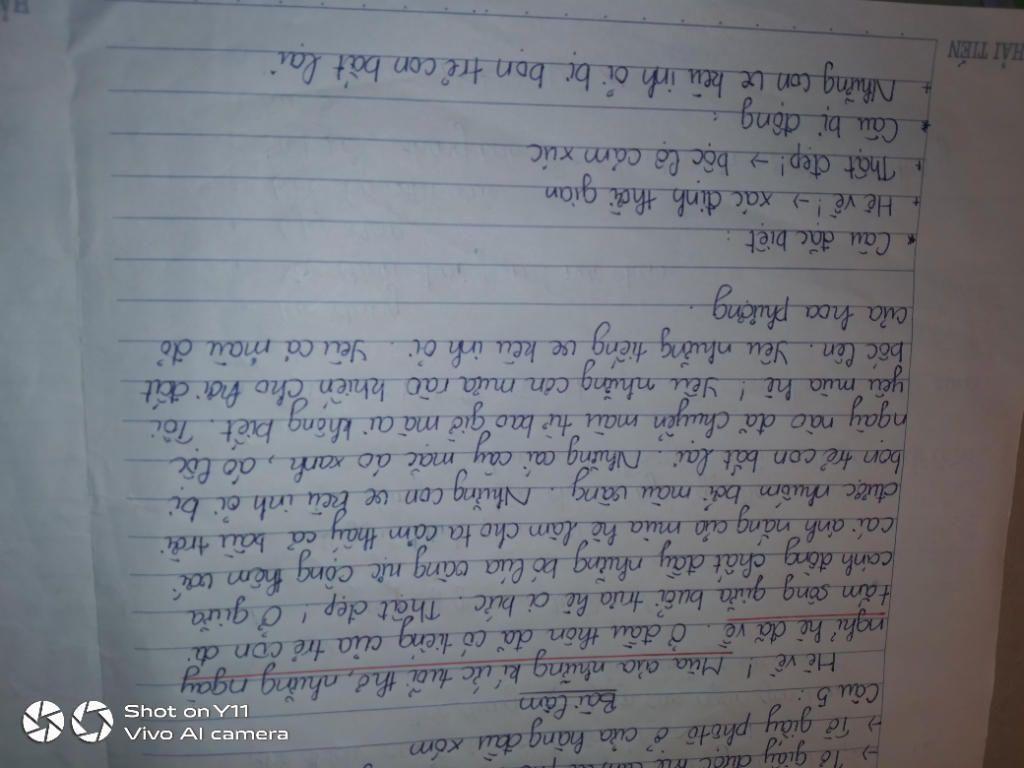 → Tờ giấy được
→ Tờ giấy phôtô ở cửa hàng đầu xóm
Câu 5: Bài làm
Hè về! Mùa của những kí ức tuổi thơ, những ngày
nghỉ hè đã về. Ở đầu thôn đã có tiếng của trẻ con đi
tắm sông giữa buổi trưa hè oi bức. Thật đẹp! Ở giữa
cánh đồng chất đầy những bó lúa cùng nức cộng thêm với
cái ánh nắng của mùa hè làm cho ta cảm thấy cả bầu trời
được nhuốm bởi màu vàng. Những con ve kêu inh ỏi bị
bọn trẻ con bắt lại. Những cái cây mặc áo xanh, áo lộc
ngày nào đã chuyển màu từ bao giờ mà ai không biết. Tôi
yêu mùa hè! Yêu những cơn mưa rào khiến cho hơi đất
bốc lên. Yêu những tiếng ve kêu inh ỏi. Yêu cả màu đỏ
của hoa phượng.
* Câu đặc biệt:
+ Hè về! → xác định thời gian
+ Thật đẹp! → bộc lộ cảm xúc
* Câu bị động:
+ Những con ve kêu inh ỏi bị bọn trẻ con bắt lại
HẢI TIẾN
HẢ
Shot on Y11
Vivo AI camera